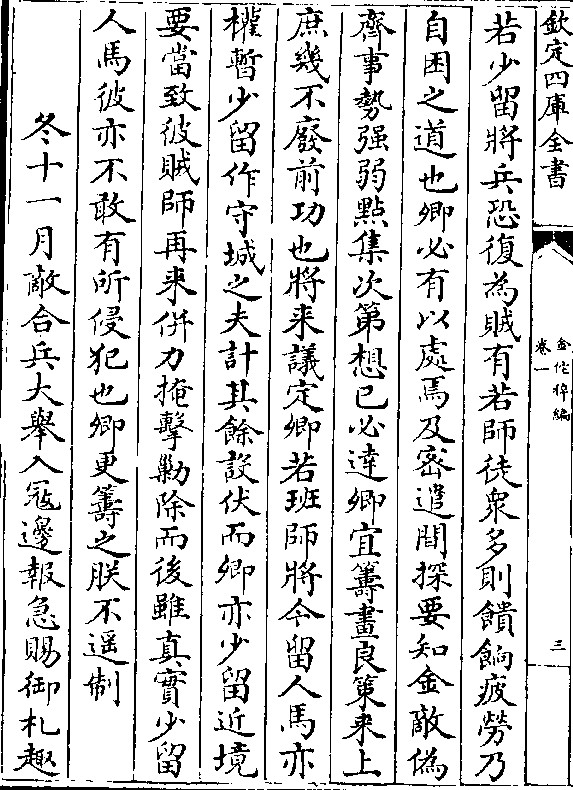 欽定四庫全書
金佗稡編
卷一
三
若少留將兵恐復為賊有若師徒衆多則饋餉疲勞乃
自困之道也卿必有以處焉及密遣間探要知金敵偽
齊事勢强弱點集次第想已必達卿宜籌畫良策来上
庶幾不廢前功也將来議定卿若班師將令留人馬亦
權暫少留作守城之夫計其餘設伏而卿亦少留近境
要當致彼賊師再来併力掩擊勦除而後雖真實少留
人馬彼亦不敢有所侵犯也卿更籌之朕不遥制
冬十一月敵合兵大舉入冦邊報急賜御札趣